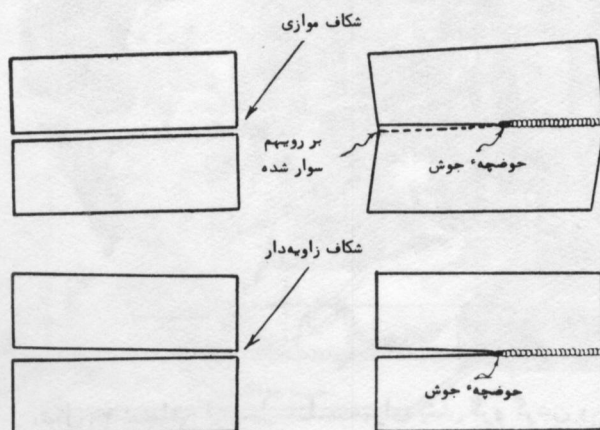 شکاف موازی
بر رویبهم
سوار شده
حوضچهٔ جوش
شکاف زاویه‌دار
حوضچهٔ جوش